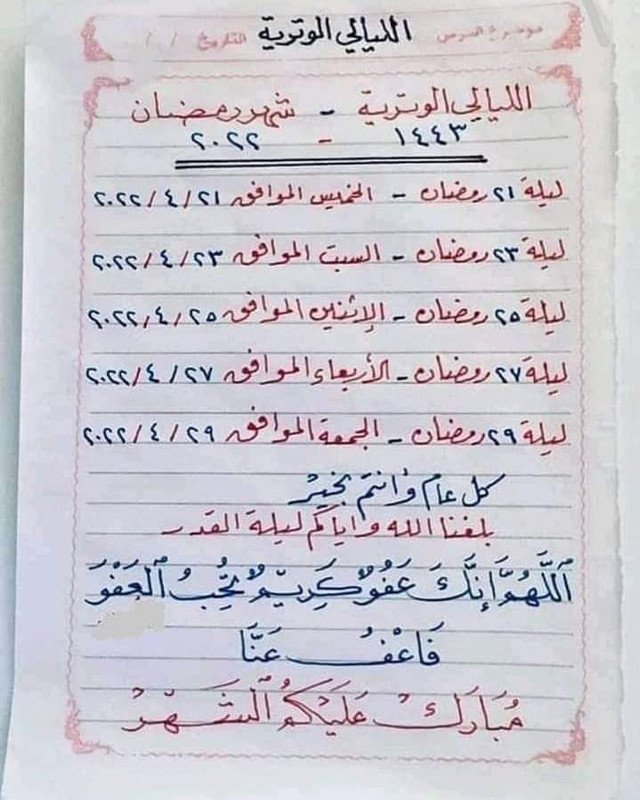 موضوع الدرس الليالي الوترية التاريخ / /
الليالي الوترية - شهر رمضان
١٤٤٣ - ٢٠٢٢
ليلة ٢١ رمضان - الخميس الموافق ٢٠٢٢/٤/٢١
ليلة ٢٣ رمضان - السبت الموافق ٢٠٢٢/٤/٢٣
ليلة ٢٥ رمضان - الإثنين الموافق ٢٠٢٢/٤/٢٥
ليلة ٢٧ رمضان - الأربعاء الموافق ٢٠٢٢/٤/٢٧
ليلة ٢٩ رمضان - الجمعة الموافق ٢٠٢٢/٤/٢٩
كل عام وانتم بخير
بلغنا الله واياكم ليلة القدر
اللَّهُمَّ إِنَّكَ عَفُوٌّ كَرِيمٌ تُحِبُّ الْعَفْوَ
فَاعْفُ عَنَّا
مُبَارَكٌ عَلَيْكُمُ الشَّهْرُ